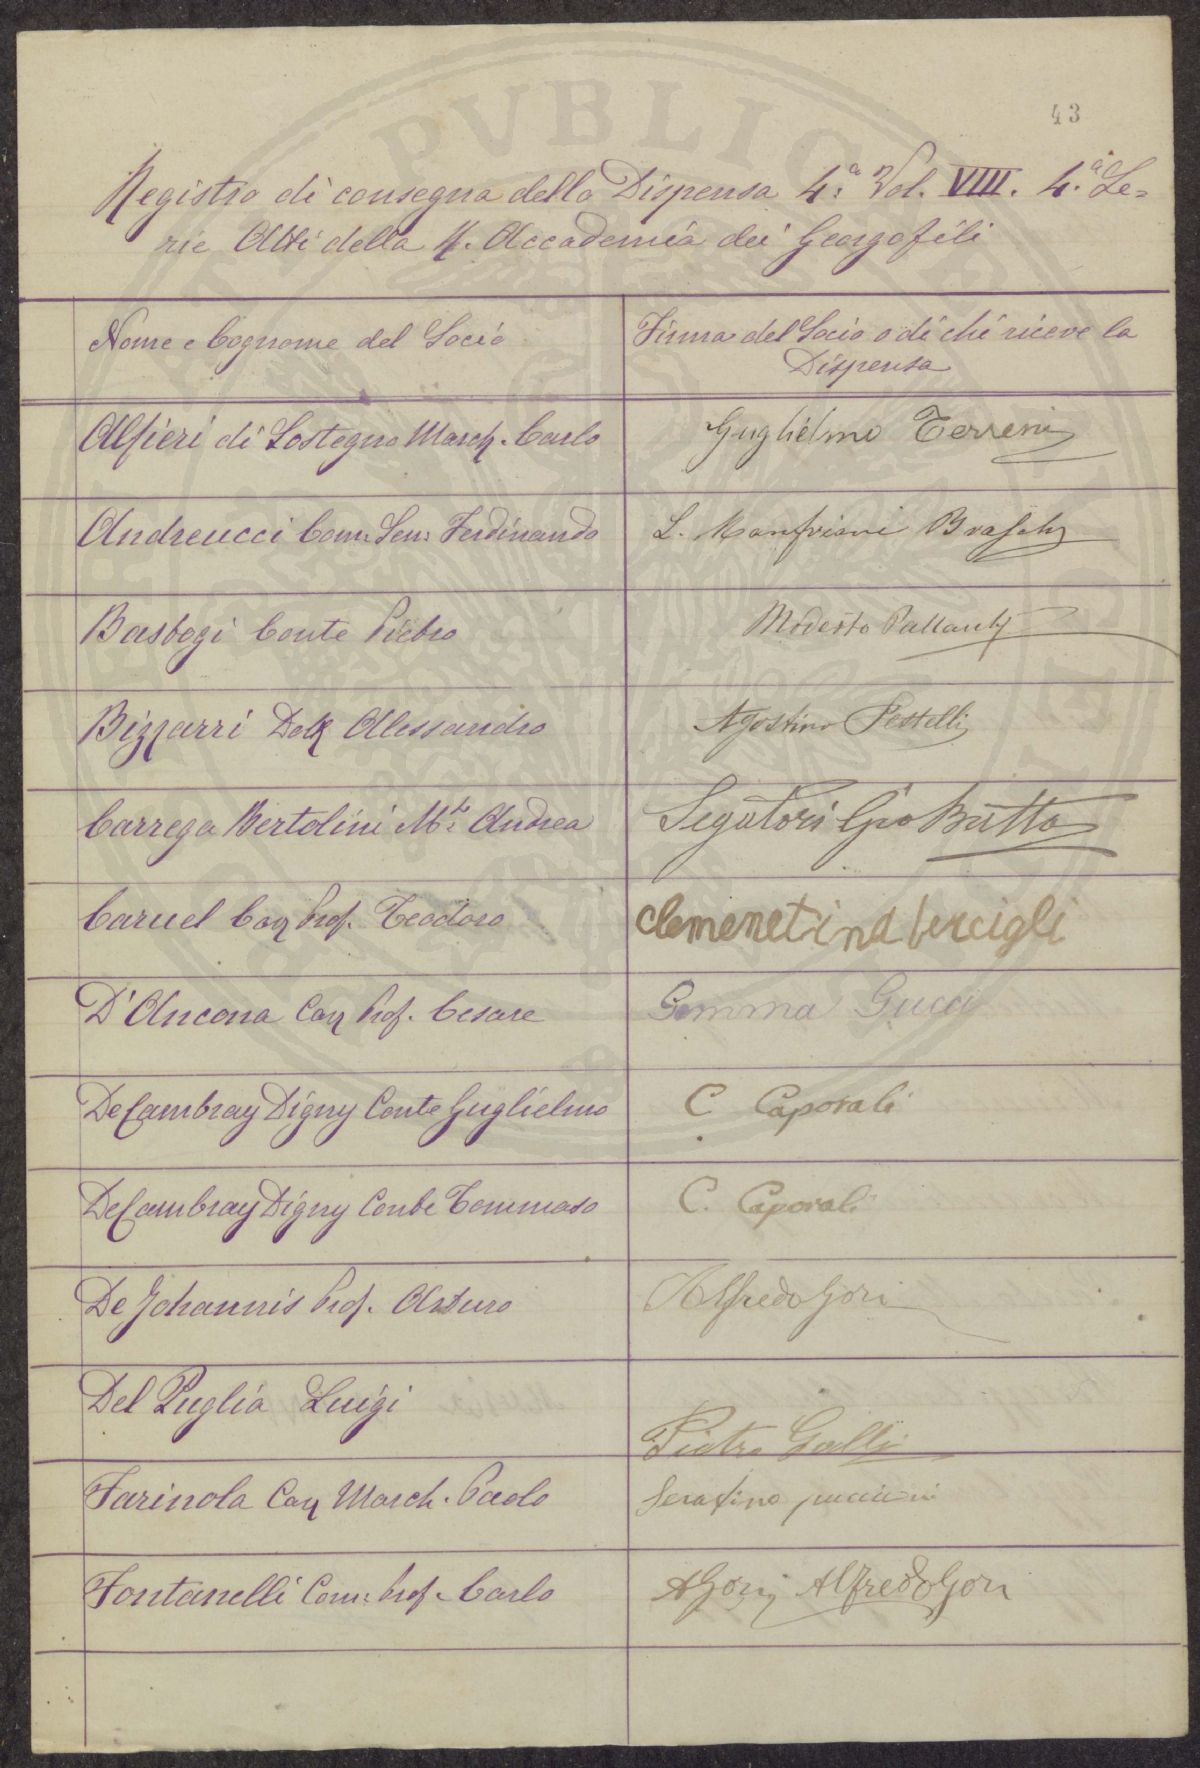 43
Registro di consegna della Dispensa 4.a Vol. VIII. 4.a Se=
rie Atti della R. Accademia dei Georgofili
Nome e Cognome del Socio
Firma del Socio o di chi riceve la
Dispensa
Alfieri di Sostegno March. Carlo
Guglielmo Terreni
Andreucci Com: Sen: Ferdinando
L. Manfriani Braschi
Basbogi Conte Pietro
Modesto Pallanti
Bizzarri Dott Alessandro
Agostino Pestelli
Carrega Bertolini M.se Andrea
Segatori Gio Batta
Caruel Cav Prof. Teodoro
Clemenetina bercigli
D'Ancona Cav Prof. Cesare
Gemma Gucci
De Cambray Digny Conte Guglielmo
C Caporali
De Cambray Digny Conte Tommaso
C. Caporali
De Johannis Prof. Arturo
Alfredo Gori
Del Puglia Luigi
Pietro Galli
Farinola Cav March. Paolo
Serafino puccioni
Fontanelli Com: Prof. Carlo
AGori Alfredo Gori